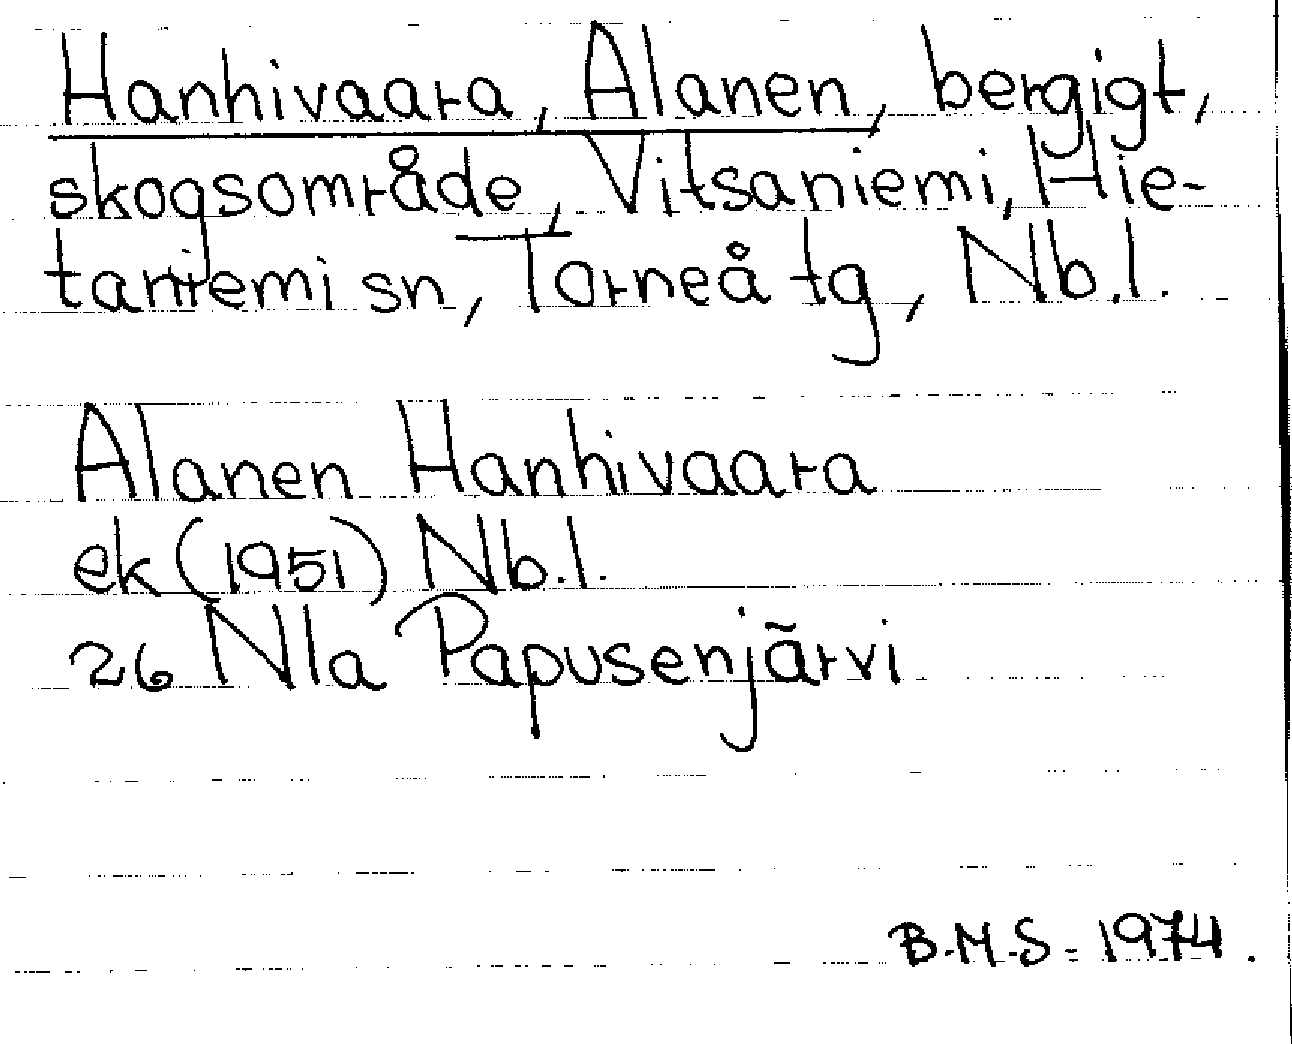 Hanhivaara, Alanen, bergigt,
skogsområde, Vitsaniemi, Hie-
taniemi sn, Torneå tg, Nb.l.
Alanen Hanhivaara
ek (1951) Nb.l.
26 Nla Papusenjärvi
B.M.S. 1974.